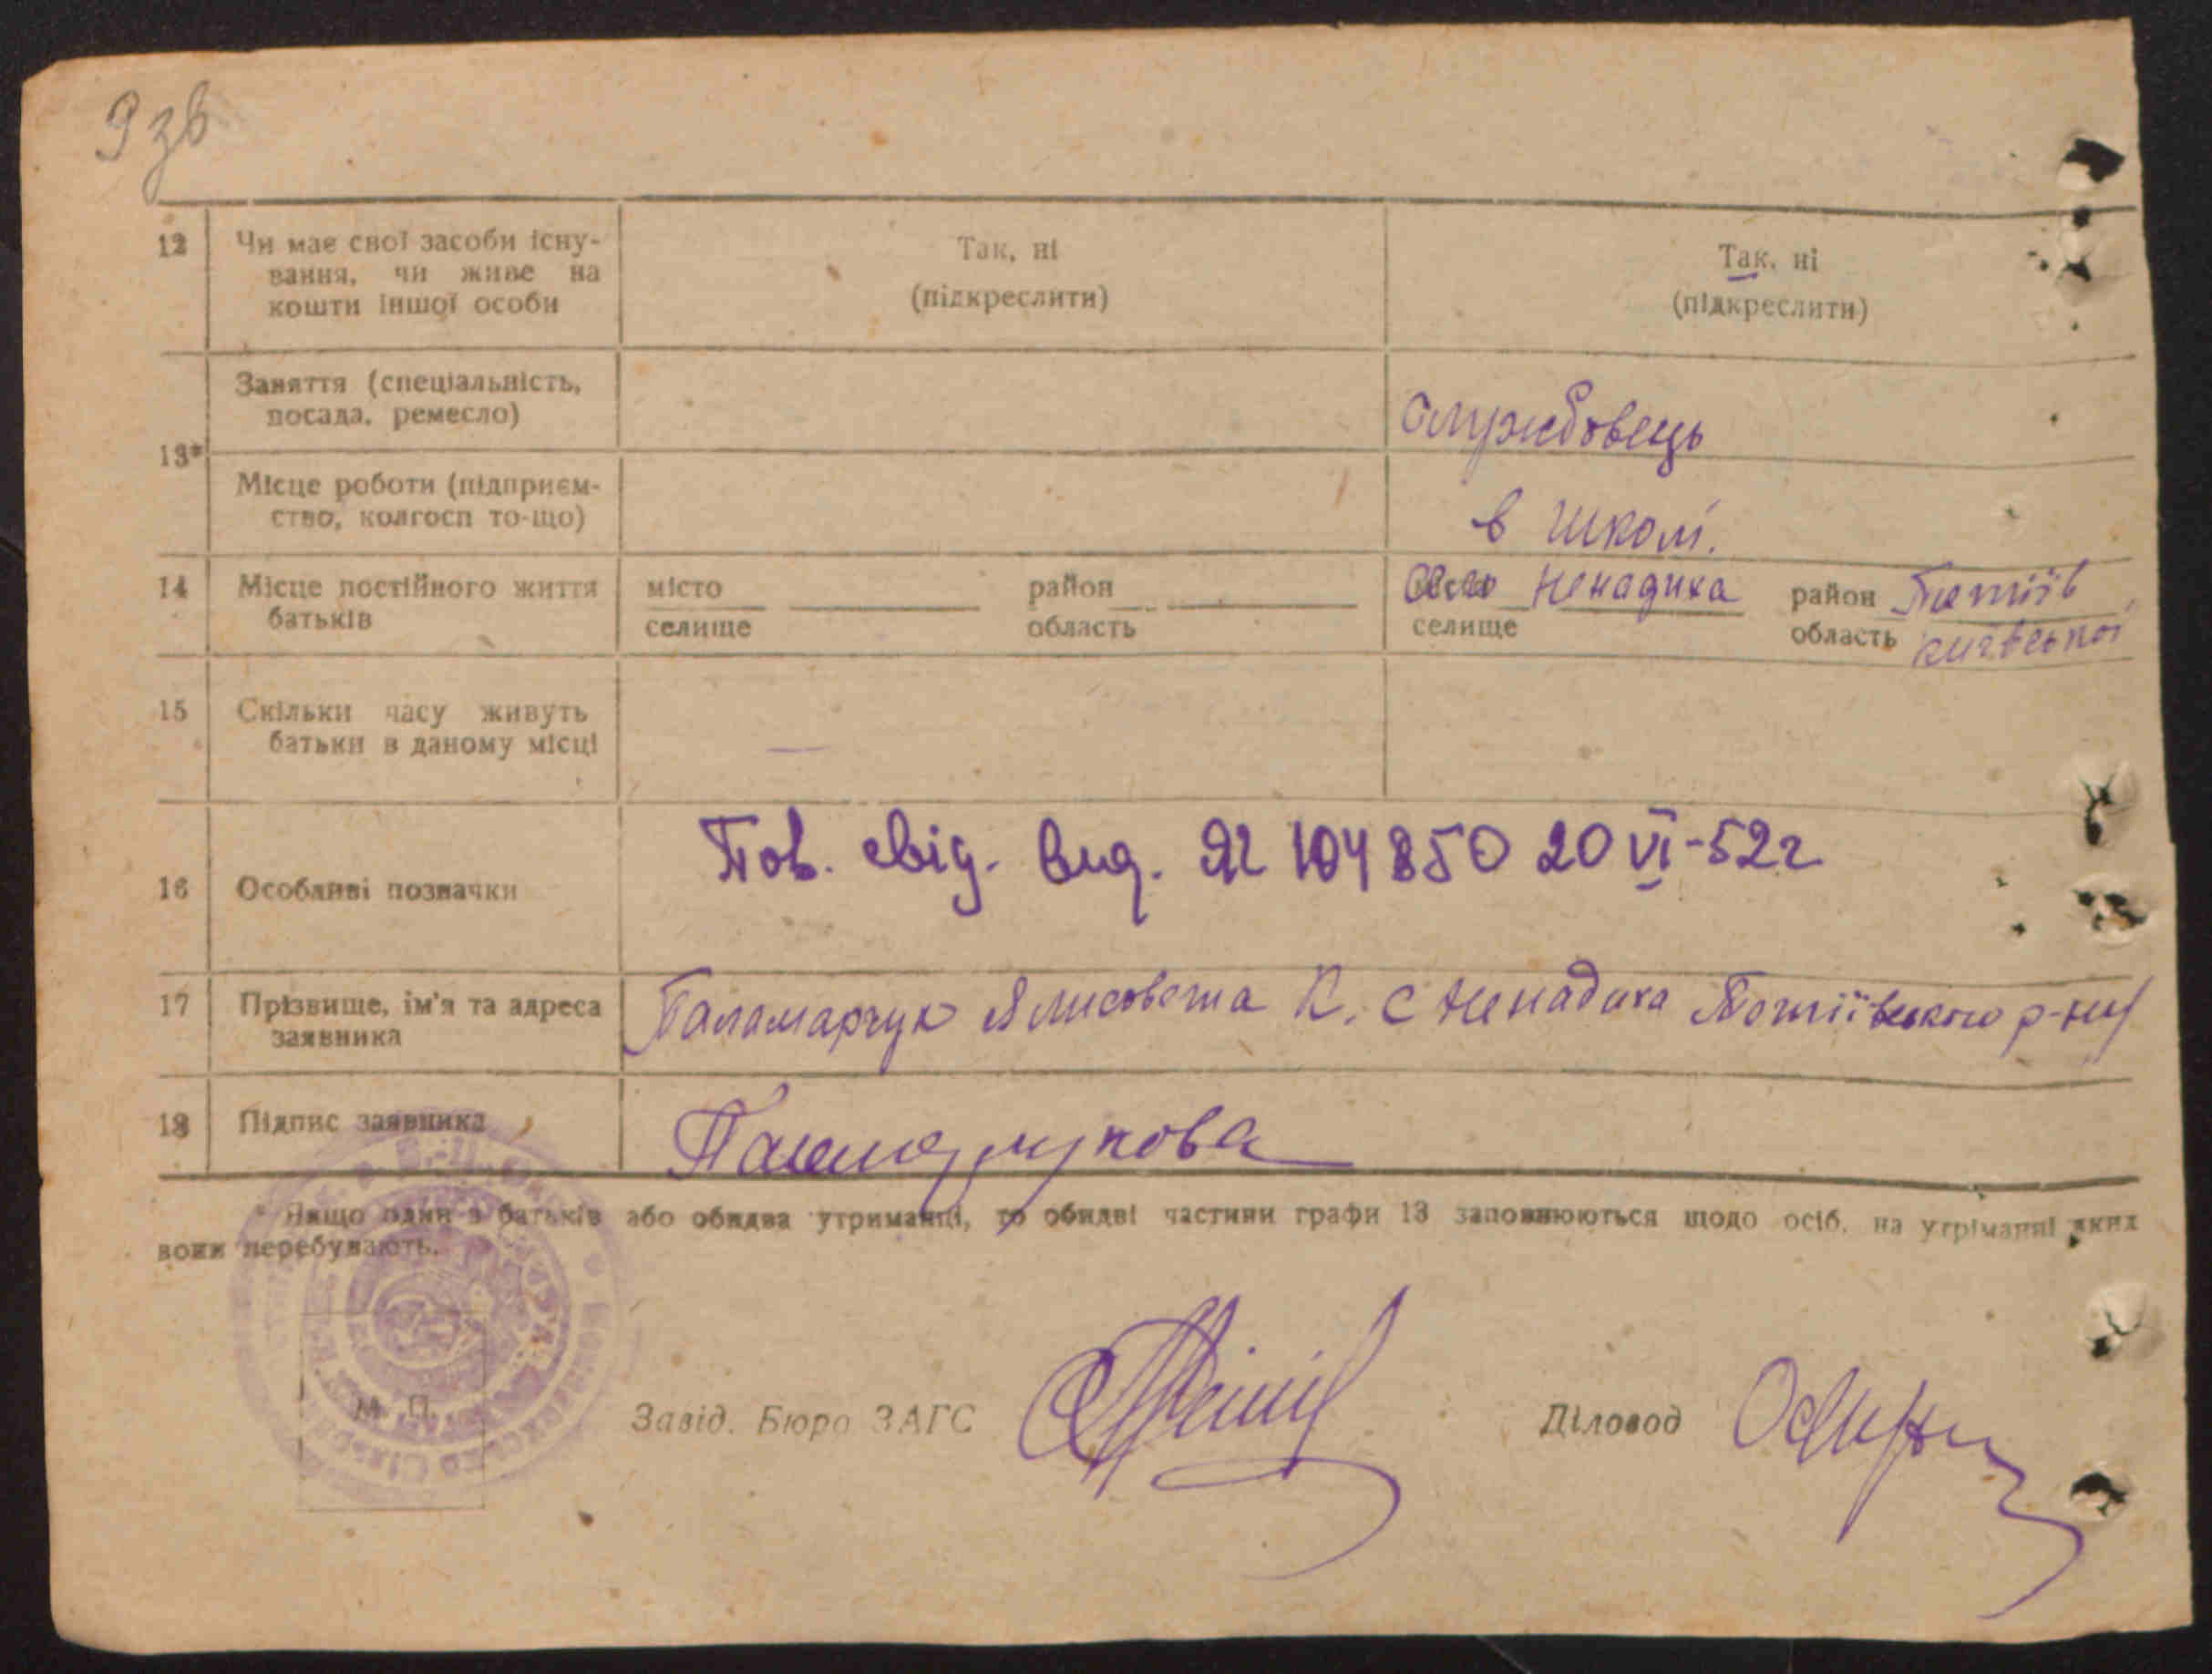 9 зв
12 Чи має свої засоби існу- Так, ні Так, ні
вання, чи живе на (підкреслити) (підкреслити)
кошти іншої особи
Заняття (спеціальність,
посада, ремесло) Службовець
13*
Місце роботи (підприєм-
ство, колгосп то-що) в школі.
14 Місце постійного життя місто район село Ненадиха район Тетіїв
батьків селище область селище область київської
15 Скільки часу живуть
батьки в даному місці —
16 Особливі позначки Пов. свід. вид. ЯГ 104850 20 VI-52г
17 Прізвище, ім'я та адреса Паламарчук Ялисовета К. с Ненадиха Тетіївського р-ну
заявника
18 Підпис заявника
* Якщо один з батьків або обидва утриманці, то обидві частини графи 13 заповнюються щодо осіб, на утріманні яких
вони перебувають.
М. П.
Завід. Бюро ЗАГС Діловод